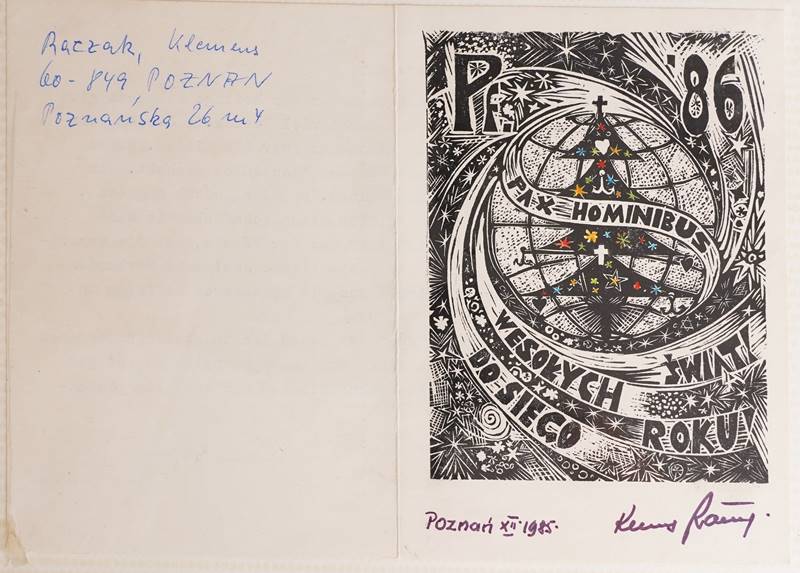 Rączak, Klemens
60-849 POZNAŃ
Poznańska 26 m 4
PF. '86
PAX HOMINIBUS
WESOŁYCH ŚWIĄT!
DO SIEGO ROKU!
Poznań XII 1985.